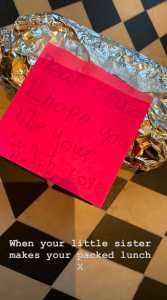 Dear Cruz
I hope you
like your
lunch
love
When your little sister
makes your packed lunch
x